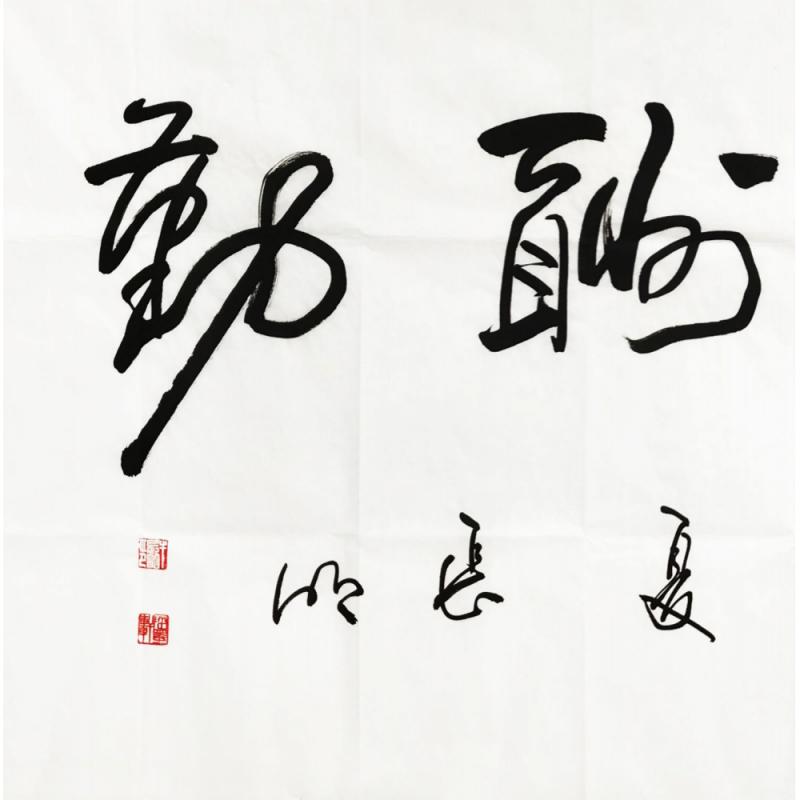 酬勤
夏長明